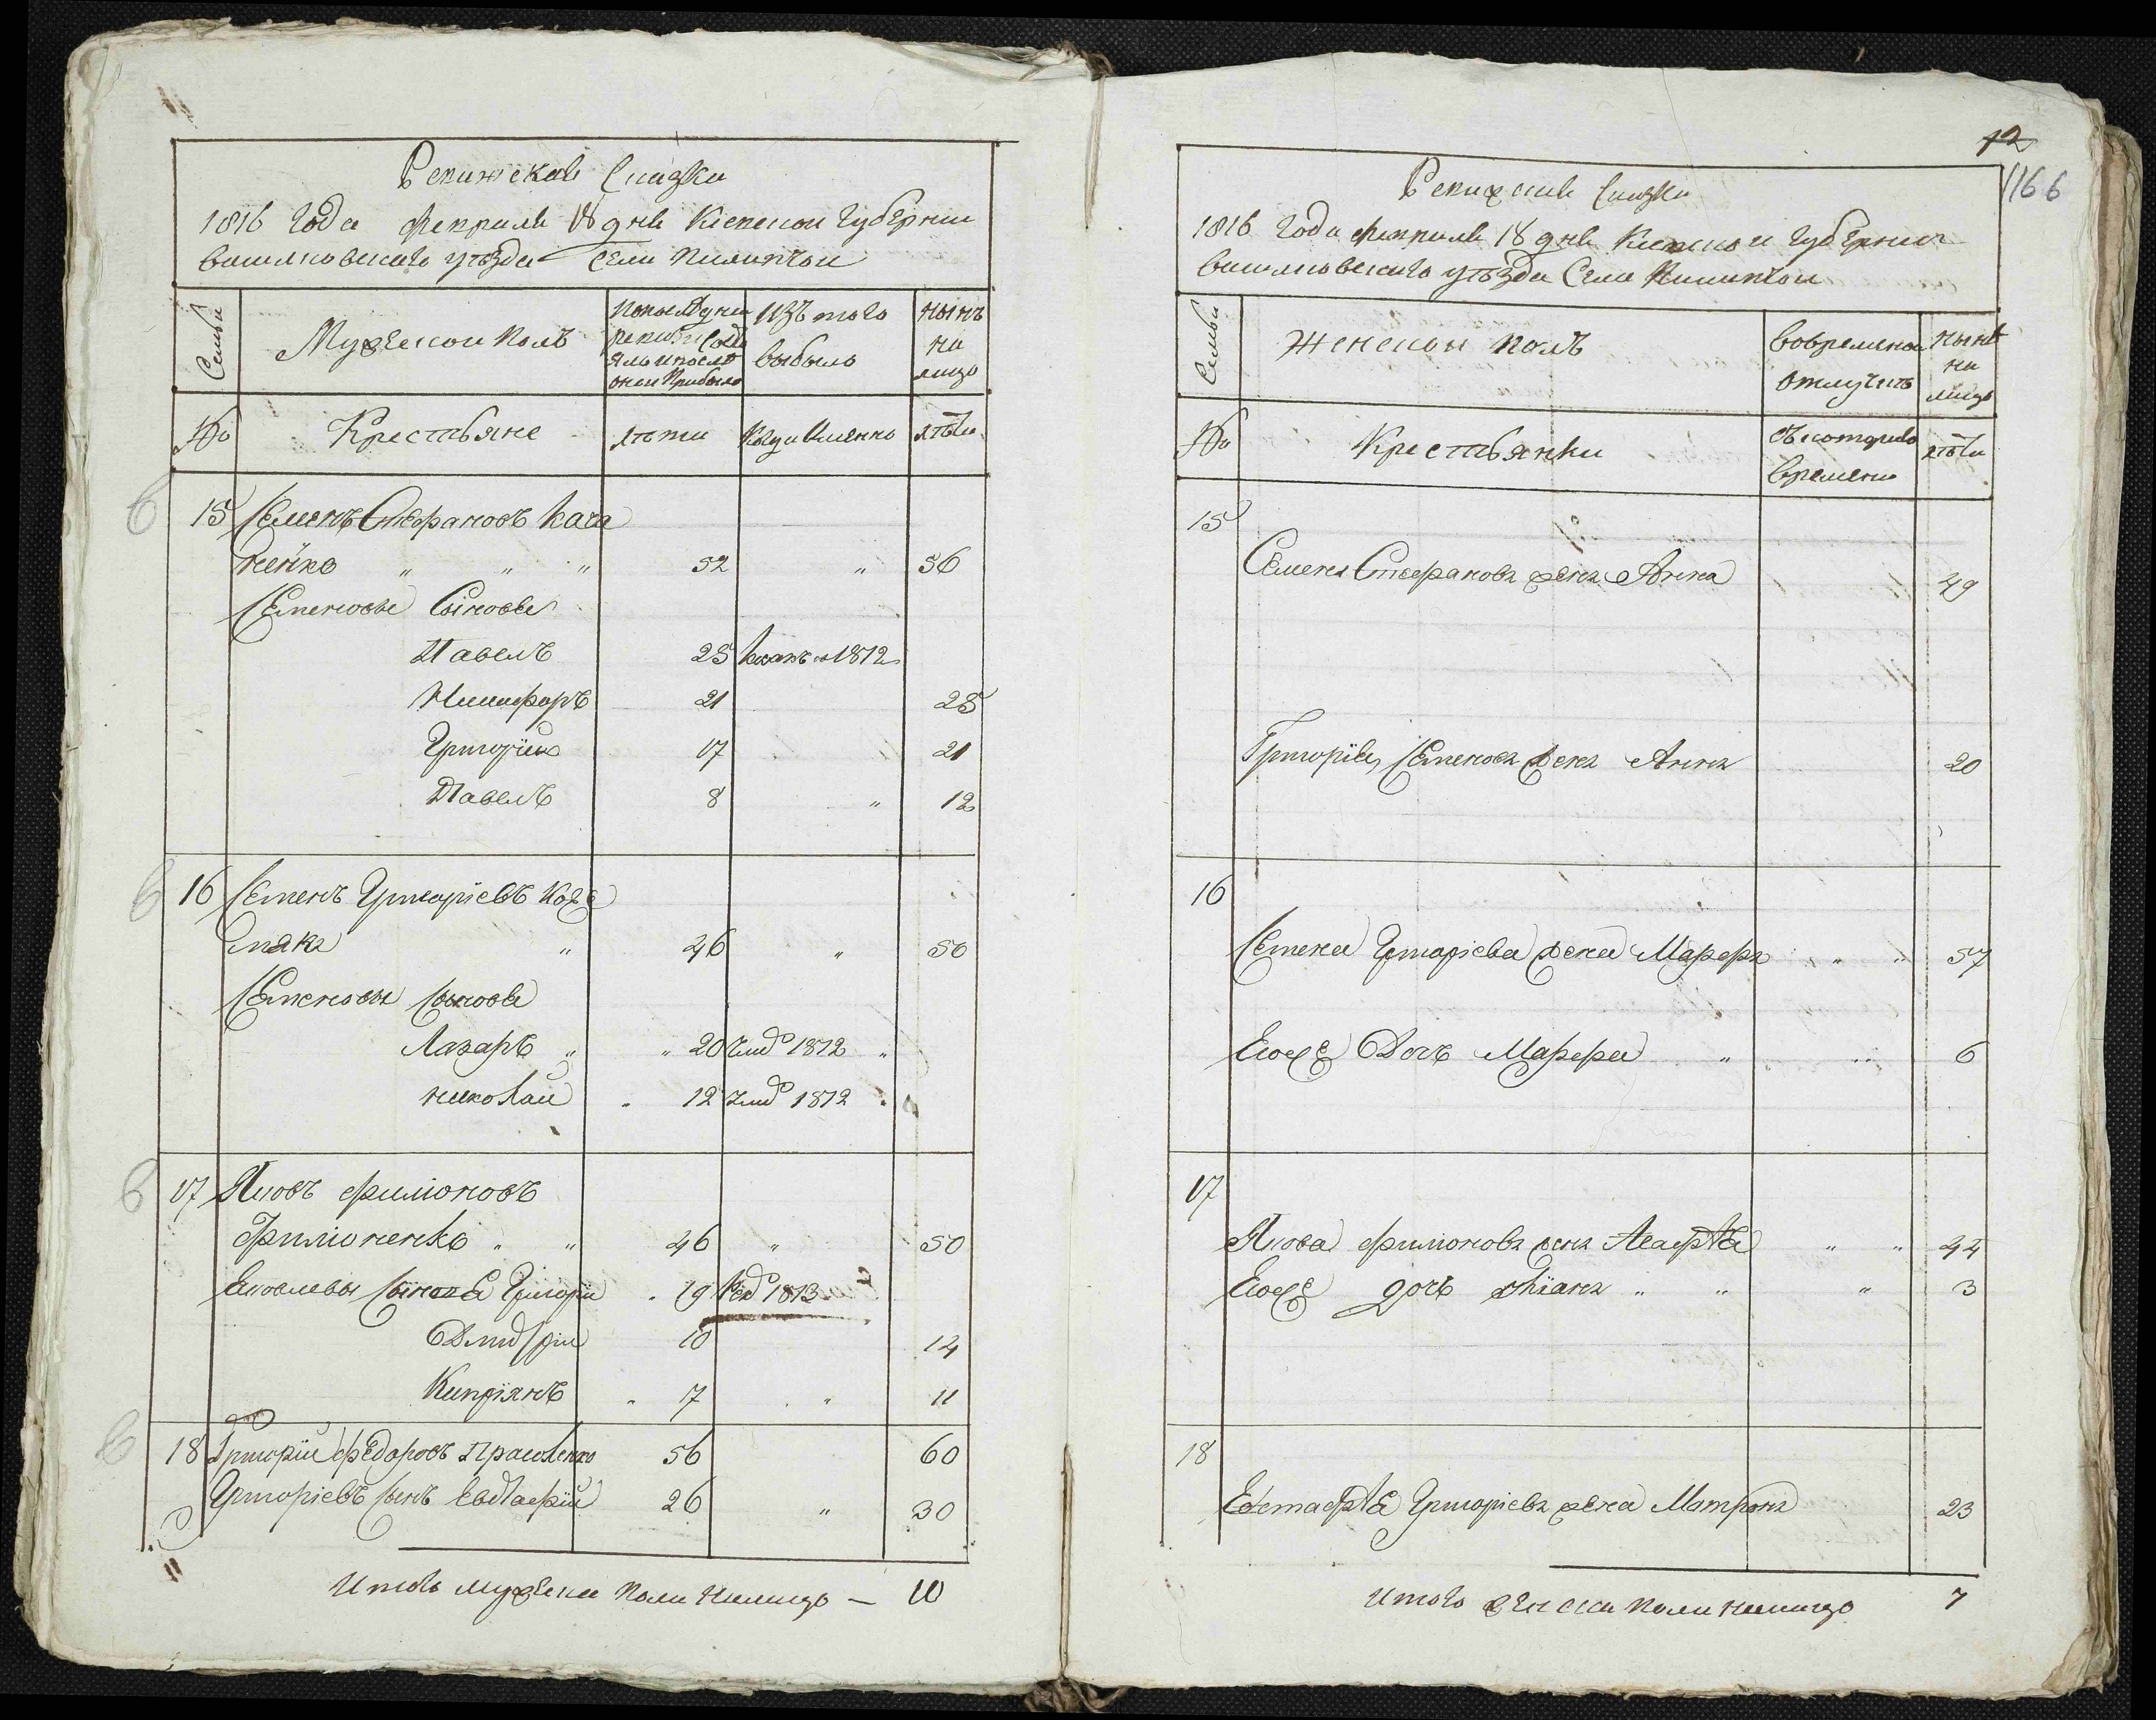 Ревижская Сказка
1816 Года Февраля 18 дня Киевской Губернии
василковского уезда Села
Семьи
Мужескои полъ
По последнеи ревизии состояло и после онои прибыло
Изъ того выбыло
Нынѣ на лицо
№
Крестьяне
лѣта
Когда именно
лѣта
15 Семенъ Стефановъ Кача
нейко " " " 52 " 56
Семеновы Сыновья
Павелъ 25 1812
Никифоръ 21 25
Григорїй 17 21
Павелъ 8 " 12
16 Семенъ Григорїевъ Коже
мяка " 46 " 50
Семеновы сыновья
Лазаръ " " 20 1812 "
николай " 12 1812 "
17 Яковъ филїоновъ
Филїоненко " " 46 " 50
Яковлевы сыновья Григорїй " 19 1813
Дмитрїй 10 14
Кипрїянъ " 7 " 11
18 Григорїй федоровъ 56 60
Григорїевъ сынъ Евстафїй 26 " 30
Итого мужеска пола налицо — 10
12
1166
Ревижская Сказка
1816 Года Февраля 18 дня Киевской Губернии
василковского уѣзда Села
Семьи
Женскои полъ
Во временнои отлучкѣ
Нынѣ на лицо
№
Крестьянки
Съ котораго времени
лѣта
15
Семена Стефанова жена Анна 49
Григорїя Семенова жена Анна 20
16
Семена Григорїева жена Марфа " " 57
Еяже Дочь Марфа " " 6
17
Якова филїонова жена Агафїя " " 44
Еяже дочь " " " 3
18
Евстафїя Григорїева жена Матрона 23
Итого женска пола налицо 7